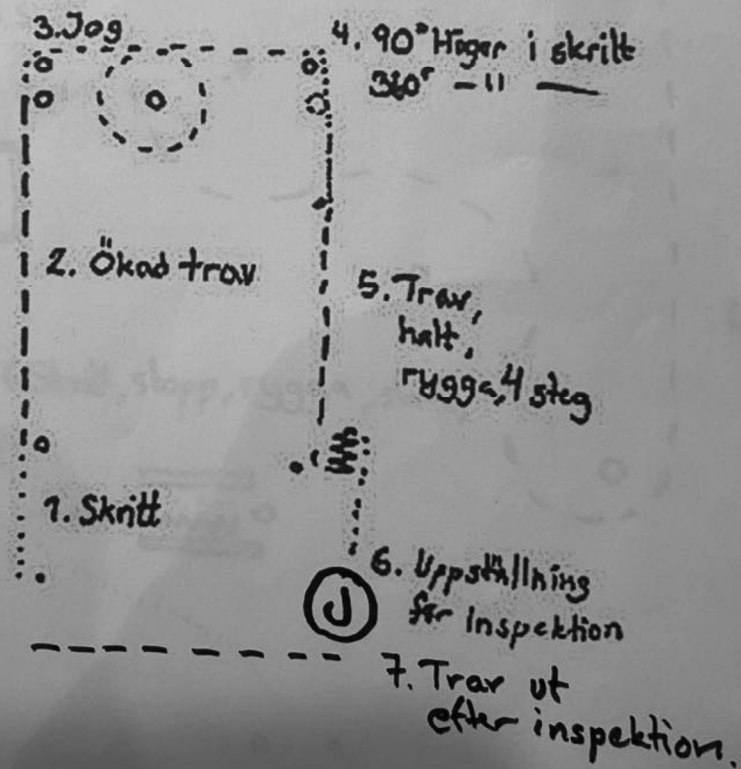 3. Jog
4. 90° Höger i skritt
360° -11-
2. Ökad trav
5. Trav,
halt,
rygga, 4 steg
1. Skritt
J
6. Uppställning
för Inspektion
7. Trav ut
efter inspektion.